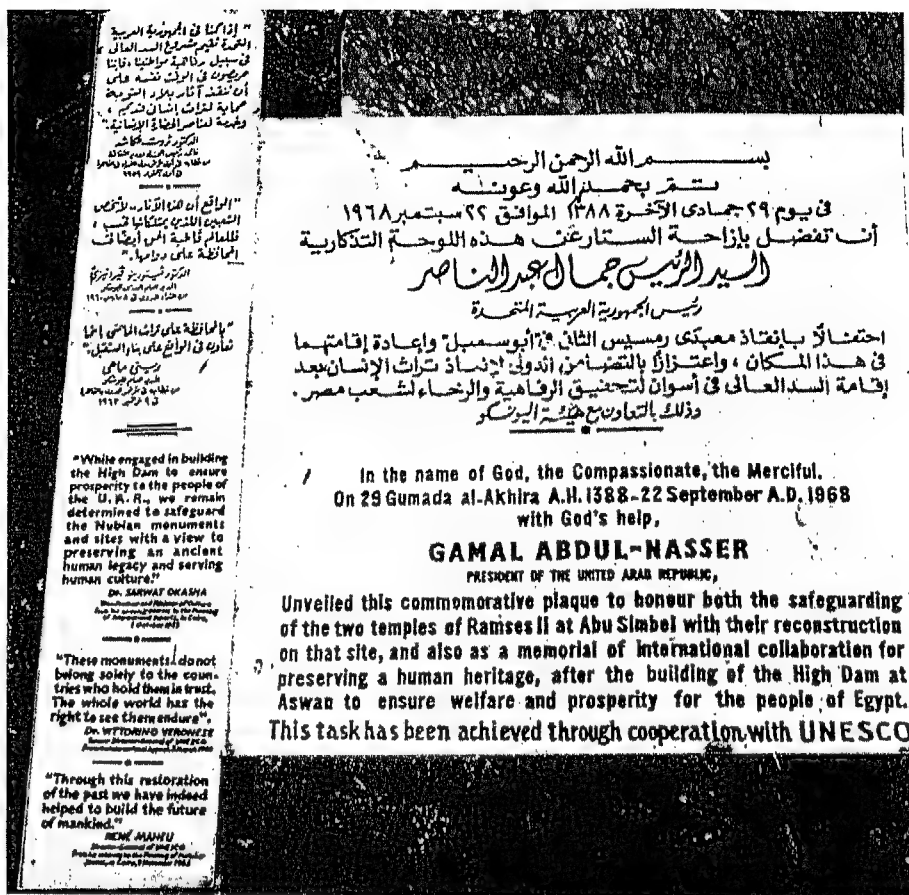 "إذا كنا في الجمهورية العربية
المتحدة نقيم مشروع السد العالى
فى سبيل رفاهية مواطنينا، فإننا
حريصون فى الوقت نفسه على
أن ننقذ آثار بلاد النوبة
حماية لتراث إنسانى قديم،
وخدمة لعناصر الحضارة الإنسانية."
الدكتور ثروت عكاشه
"الواقع أن هذا الآثار.. لا تخص
الشعبين اللذين يمتلكانها فحسب،
فللعالم قاطبة الحق أيضا فى
المحافظة على دوامها."
الدكتور فيتورينو فيرونيزى
"بالمحافظة على تراث الماضى إنما
نعاون فى الواقع على بناء المستقبل."
رينى ماهى
"While engaged in building
the High Dam to ensure
prosperity to the people of
the U.A.R., we remain
determined to safeguard
the Nubian monuments
and sites with a view to
preserving an ancient
human legacy and serving
human culture."
Dr. SARWAT OKASHA
"These monuments do not
belong solely to the coun-
tries who hold them in trust.
The whole world has the
right to see them endure".
Dr. VITTORINO VERONESE
"Through this restoration
of the past we have indeed
helped to build the future
of mankind."
RENÉ MAHEU
Director-General of UNESCO
بسم الله الرحمن الرحيم
تم بحمد الله وعونه
فى يوم ٢٩ جمادى الآخرة ١٣٨٨ الموافق ٢٢ سبتمبر ١٩٦٨
أن تفضل بإزاحة الستار عن هذه اللوحة التذكارية
السيد الرئيس جمال عبد الناصر
رئيس الجمهورية العربية المتحدة
احتفالًا بإنقاذ معبدى رمسيس الثانى فى "أبو سمبل" وإعادة إقامتهما
فى هذا المكان، واعتزازًا بالتضامن الدولى لإنقاذ تراث الإنسان بعد
إقامة السد العالى فى أسوان لتحقيق الرفاهية والرخاء لشعب مصر.
وذلك بالتعاون مع هيئة اليونسكو
In the name of God, the Compassionate, the Merciful.
On 29 Gumada al-Akhira A.H. 1388-22 September A.D. 1968
with God's help,
GAMAL ABDUL-NASSER
PRESIDENT OF THE UNITED ARAB REPUBLIC,
Unveiled this commomorative plaque to honour both the safeguarding
of the two temples of Ramses II at Abu Simbel with their reconstruction
on that site, and also as a memorial of international collaboration for
preserving a human heritage, after the building of the High Dam at
Aswan to ensure welfare and prosperity for the people of Egypt.
This task has been achieved through cooperation with UNESCO